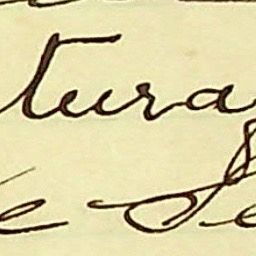 tura
e Se